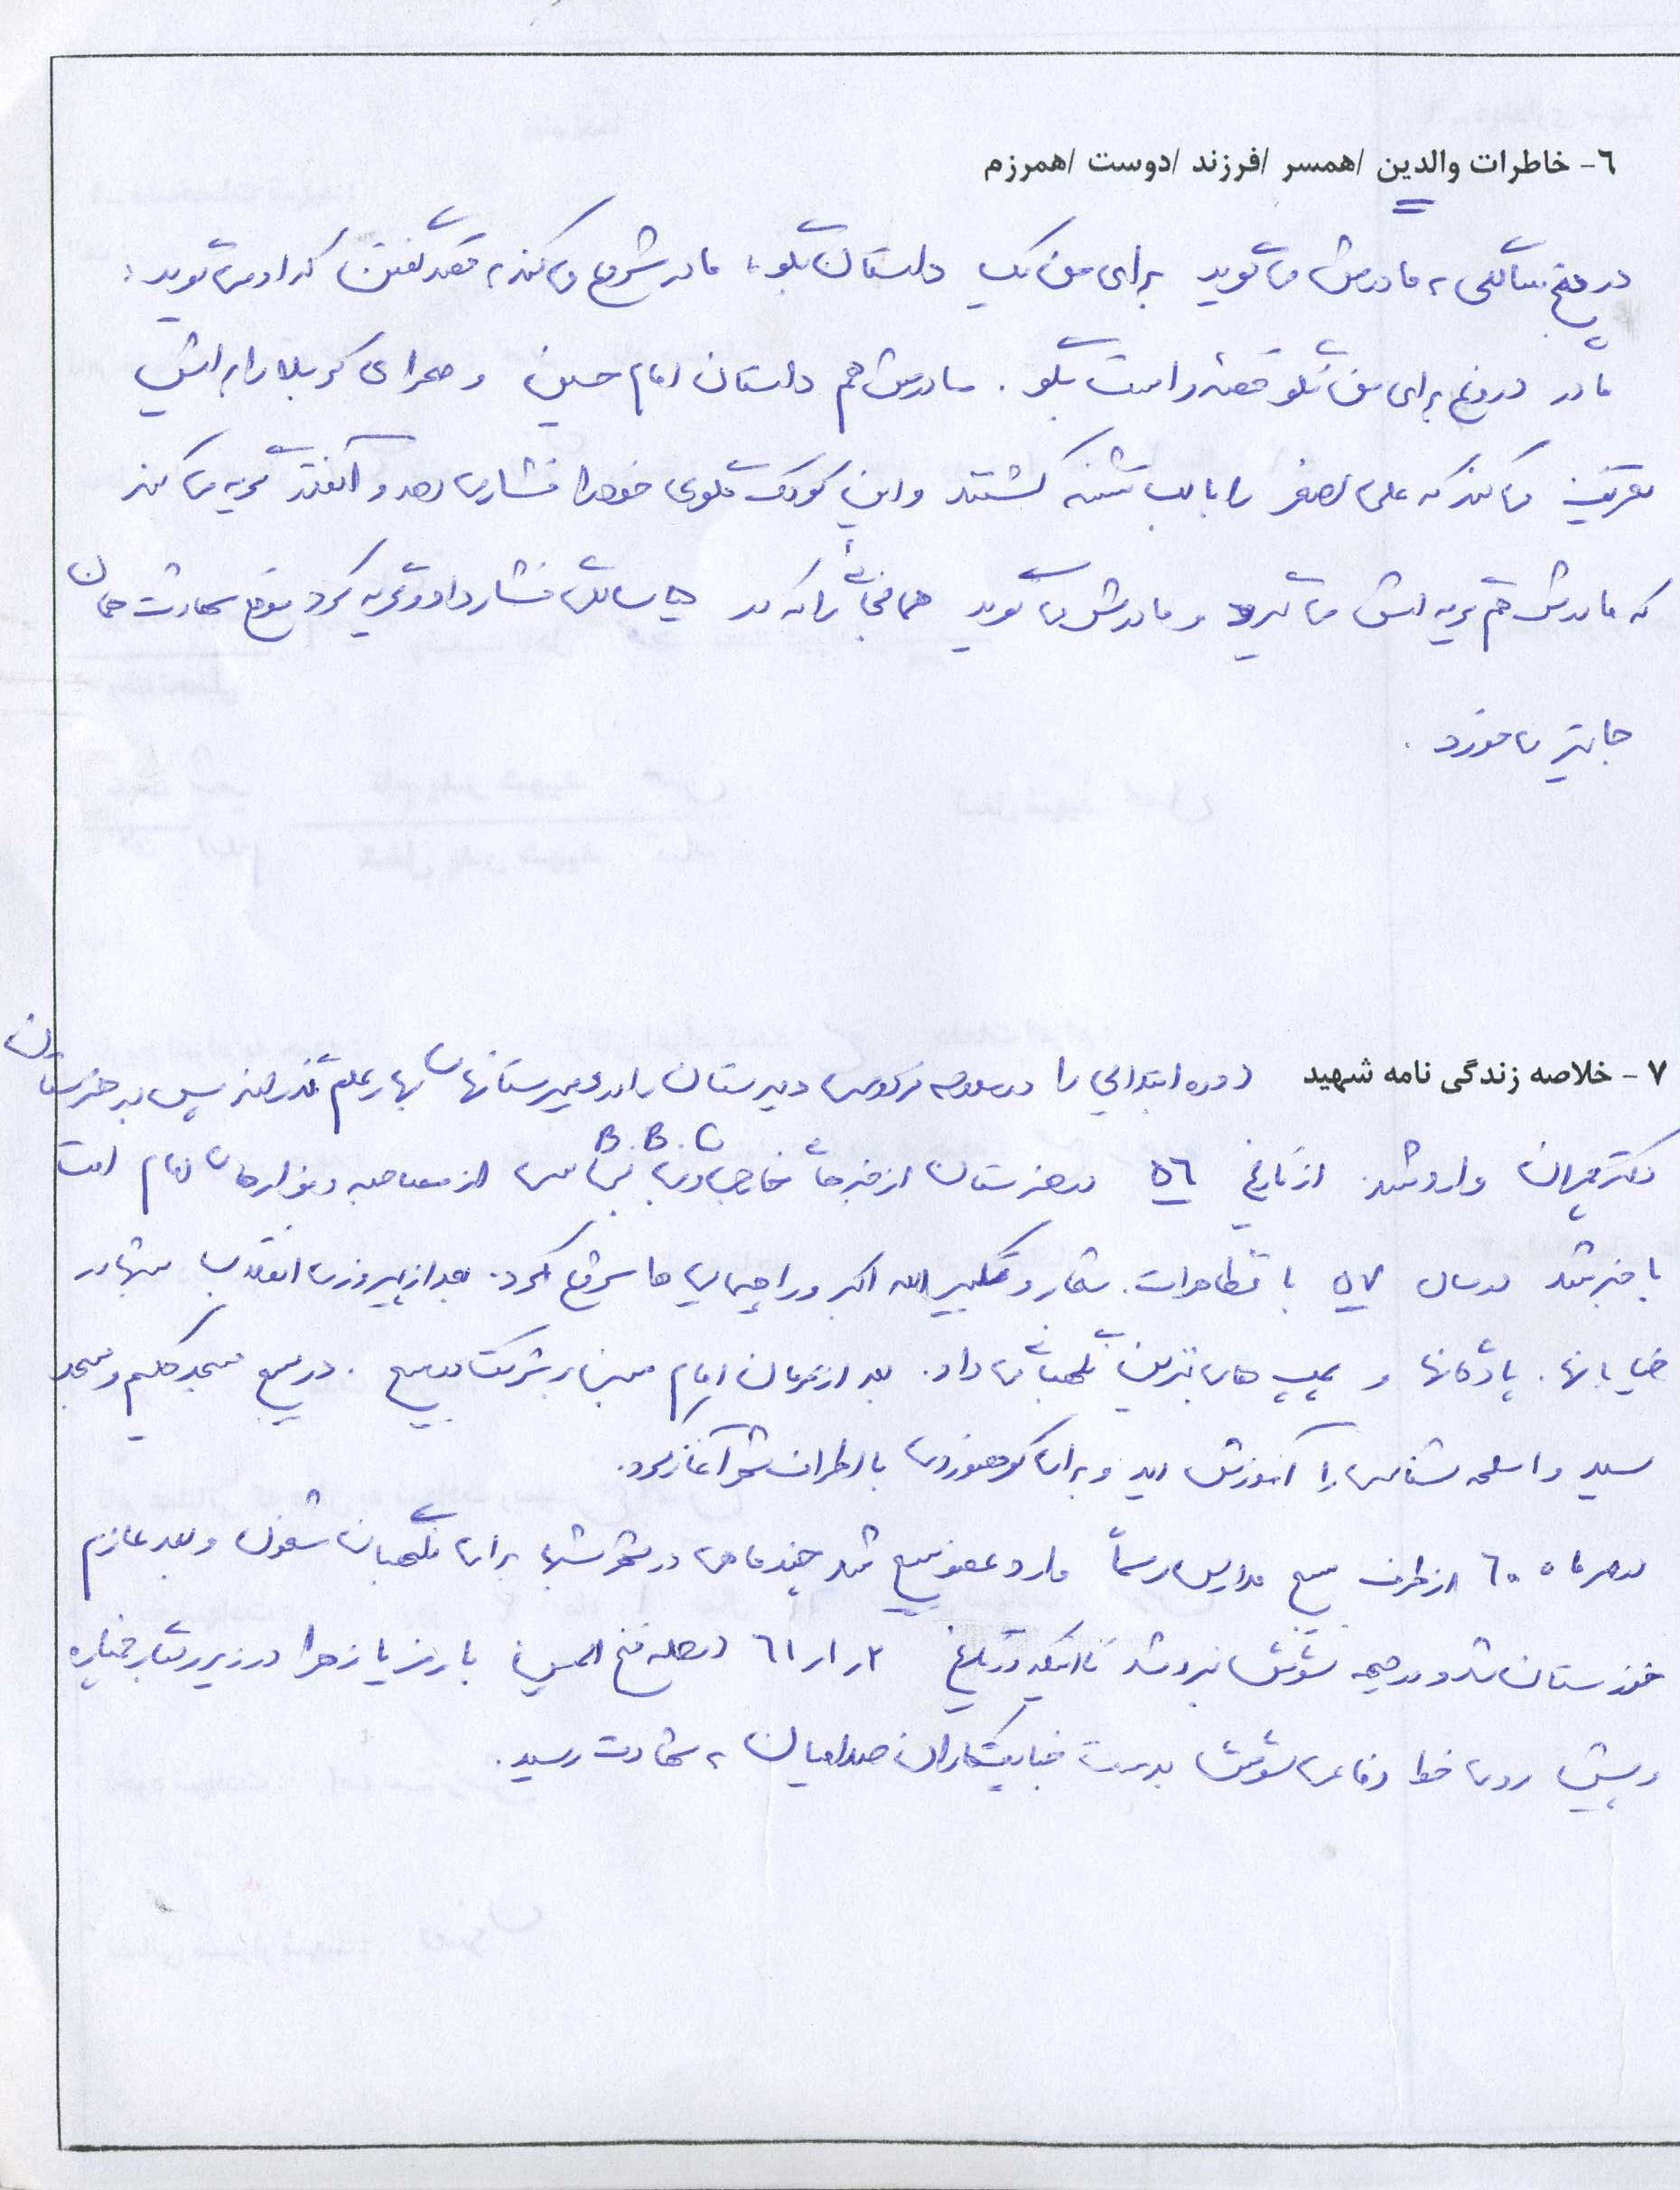 ٦- خاطرات والدین /همسر /فرزند /دوست /همرزم
در پنج سالگی به مادرش می گوید برای من یک داستان بگو، مادر شروع می کند به قصه گفتن که او می گوید:
مادر دروغ برای من نگو قصه راست بگو. مادرش هم داستان امام حسین و صحرای کربلا را برایش
تعریف می کند که علی اصغر را با لب تشنه کشتند و این کودک گلوی خود را فشار می دهد و آنقدر گریه می کند
که مادرش هم گریه اش می گیرد و مادرش می گوید همانجائی را که در ۵ سالگی فشار داد و گریه کرد موقع شهادت همان
جا تیر می خورد.
۷- خلاصه زندگی نامه شهید دوره ابتدایی را در مدرسه دبیرستان را در دبیرستانهای بهار علم گذراند سپس به هنرستان
دکتر چمران وارد شد. از تاریخ ٥٦ در هنرستان از خبرهای خارجی رادیو بی بی سی از مصاحبه و نوارهای امام امت
B.B.C
با خبر شد در سال ٥٧ با تظاهرات. شعار و تکبیر الله اکبر و راهپیمایی ها شروع کرد. بعد از پیروزی انقلاب شبها در
خیابانها. پادگانها و پمپ های بنزین نگهبانی می داد. بعد از فرمان امام مبنی بر شرکت در بسیج. در بسیج مسجد حکیم و مسجد
سید و اسلحه شناسی را آموزش دید و برای کوهنوردی با اطراف شهر آغاز کرد.
در مهر ماه ٦٠ از طرف بسیج مدارس رسماً وارد عضو بسیج شد چند ماهی در شهر شبها برای نگهبانی مشغول و بعد عازم
خوزستان شد و در جبهه شوش نبرد شد تا اینکه در تاریخ ٢ر١ر٦١ در حمله فتح المبین با رمز یا زهرا در زیر رگبار خمپاره
و پیش روی خط دفاعی شوش بدست جنایتکاران صدامیان به شهادت رسید.